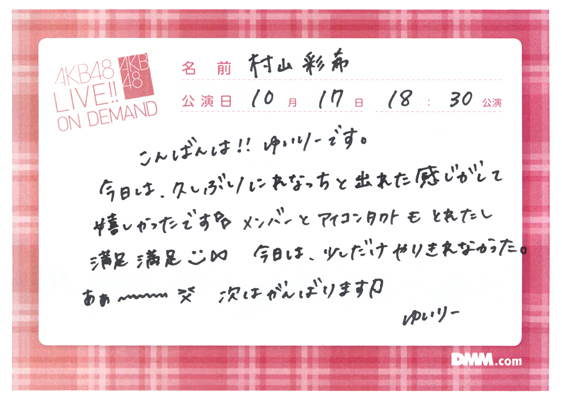 AKB48
LIVE!!
ON DEMAND
AKB
48
名前 村山彩希
公演日 10月17日 18:30公演
こんばんは!! ゆいりーです。
今日は、久しぶりにれなっちと出れた感じがして
嬉しかったです メンバーとアイコンタクトもとれたし
満足満足 今日は、少しだけやりきれなかった。
あぁ〜 次はがんばります
ゆいりー
DMM.com